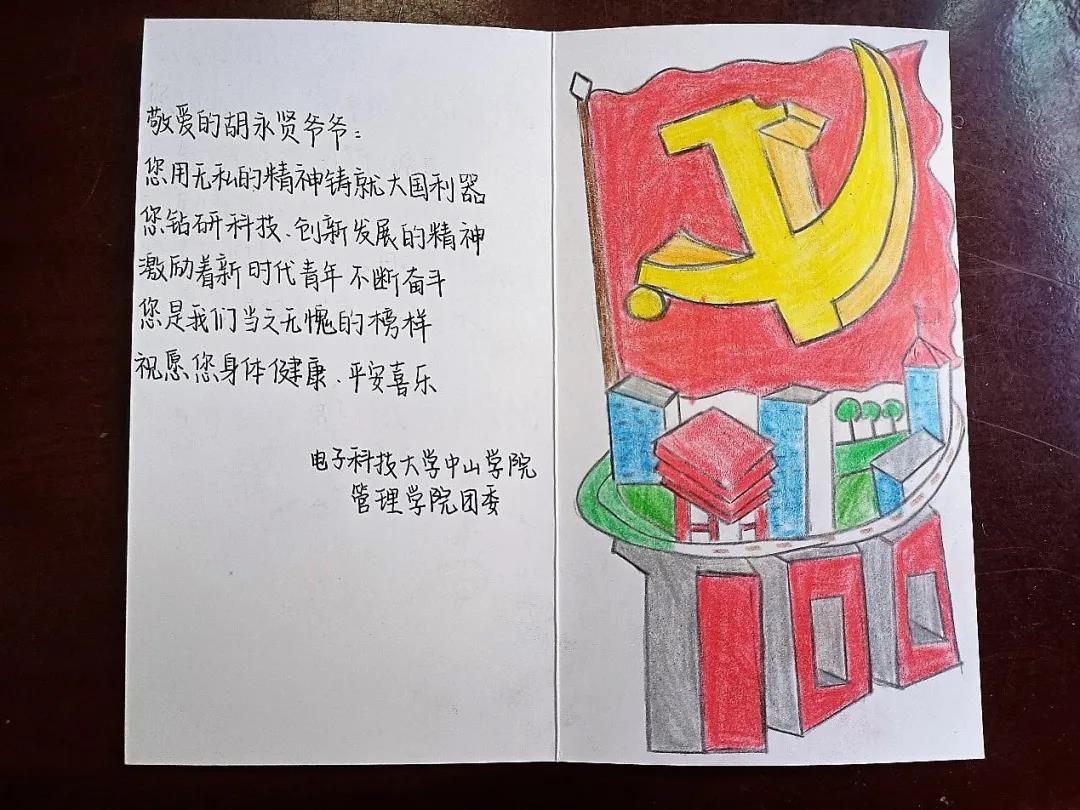 敬爱的胡永贤爷爷：
您用无私的精神铸就大国利器
您钻研科技、创新发展的精神
激励着新时代青年不断奋斗
您是我们当之无愧的榜样
祝愿您身体健康、平安喜乐
电子科技大学中山学院
管理学院团委
100